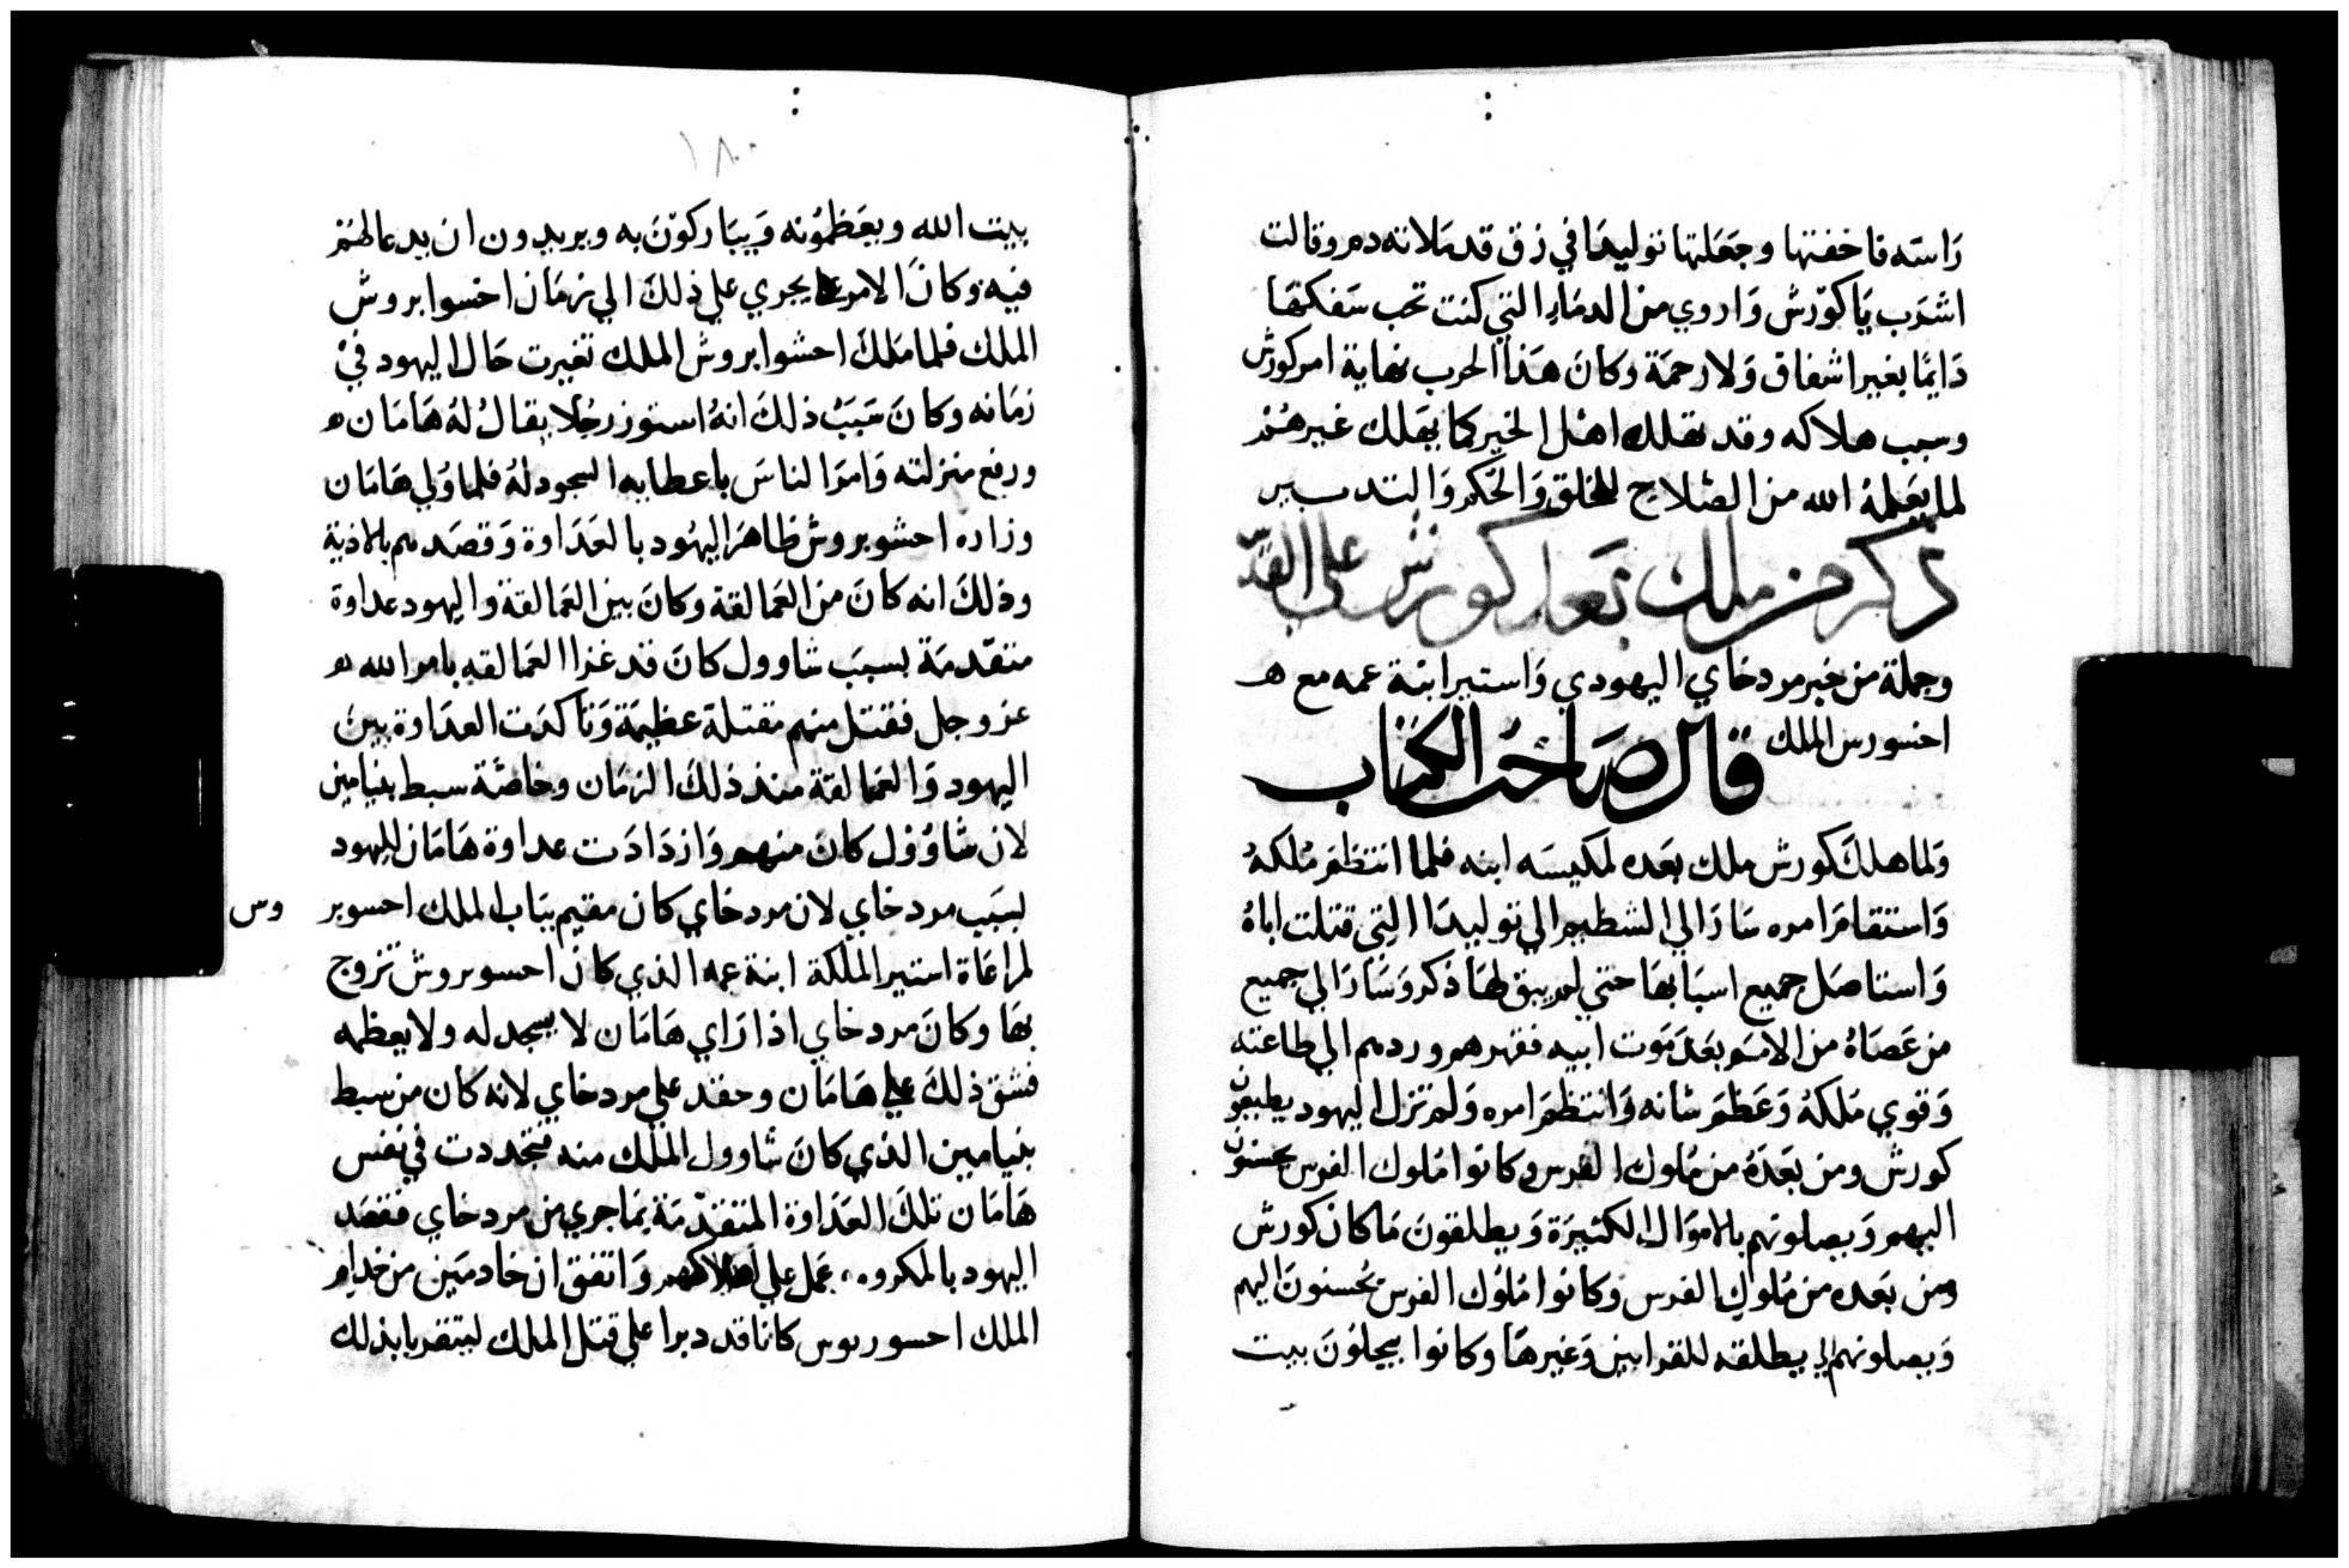 راسه فاخفتها وجعلتها توليدا في زق قد ملاته دم وقالت
اشرب يا كورش واروي من الدماء التي كنت تحب سفكها
دايما بغير اشفاق ولا رحمة وكان هذا الحرب نهاية امر كورش
وسبب هلاكه وقد تهلك اهل الخير كما يهلك غيرهم
لما يعلمه الله من الصلاح للخلق والحكم والتدبير
ذكر من ملك بعد كورش على الفرس
وجملة من خبر مردخاي اليهودي واستير ابنة عمه مع
احسورس الملك قال صاحب الكتاب
ولما هلك كورش ملك بعده لمكيسه ابنه فلما انتظم ملكه
واستقام امره سار الي الشطيم الي توليدا التي قتلت اباه
واستاصل جميع اسبابها حتي لم يبق لها ذكر وسار الي جميع
من عصاه من الامم بعد موت ابيه فقهرهم وردهم الي طاعته
وقوي ملكه وعظم شانه وانتظم امره ولم تزل اليهود يطيعون
كورش ومن بعده من ملوك الفرس وكانوا ملوك الفرس يحسنون
اليهم ويصلونهم بالاموال الكثيرة ويطلقون ما كان كورش
ومن بعده من ملوك الفرس وكانوا ملوك الفرس يحسنون اليهم
ويصلونهم يطلقه للقرابين وغيرها وكانوا يبجلون بيت
١٨٠
بيت الله ويعظمونه ويباركون به ويريدون ان يدعا لهم
فيه وكان الامر يجري علي ذلك الي زمان احسوابروش
الملك فلما ملك احشوابروش الملك تغيرت حال اليهود في
زمانه وكان سبب ذلك انه استوزر رجلا يقال له هامان
ورفع منزلته وامر الناس باعطايه السجود له فلما ولي هامان
وزاره احشوبروش ظاهر اليهود بالعداوة وقصدهم بالاذية
وذلك انه كان من العمالقة وكان بين العمالقة واليهود عداوة
متقدمة بسبب شاوول كان قد غزا العمالقه بامر الله
عز وجل فقتل منهم مقتلة عظيمة وتاكدت العداوة بين
اليهود والعمالقة منذ ذلك الزمان وخاصة سبط بنيامين
لان شاوول كان منهم وازدادت عداوة هامان لليهود
لسبب مردخاي لان مردخاي كان مقيم بباب الملك احسوبر وس
لمراعاة استير الملكة ابنة عمه الذي كان احسوبروش تزوج
بها وكان مردخاي اذا راي هامان لا يسجد له ولا يعظمه
فشق ذلك علي هامان وحقد علي مردخاي لانه كان من سبط
بنيامين الذي كان شاوول الملك منه فتجددت في نفس
هامان تلك العداوة المتقدمة بما جري من مردخاي فقصد
اليهود بالمكروه، عمل علي اهلاكهم واتفق ان خادمين من خدام
الملك احسوربوس كانا قد دبرا علي قتل الملك ليتقربا بذلك